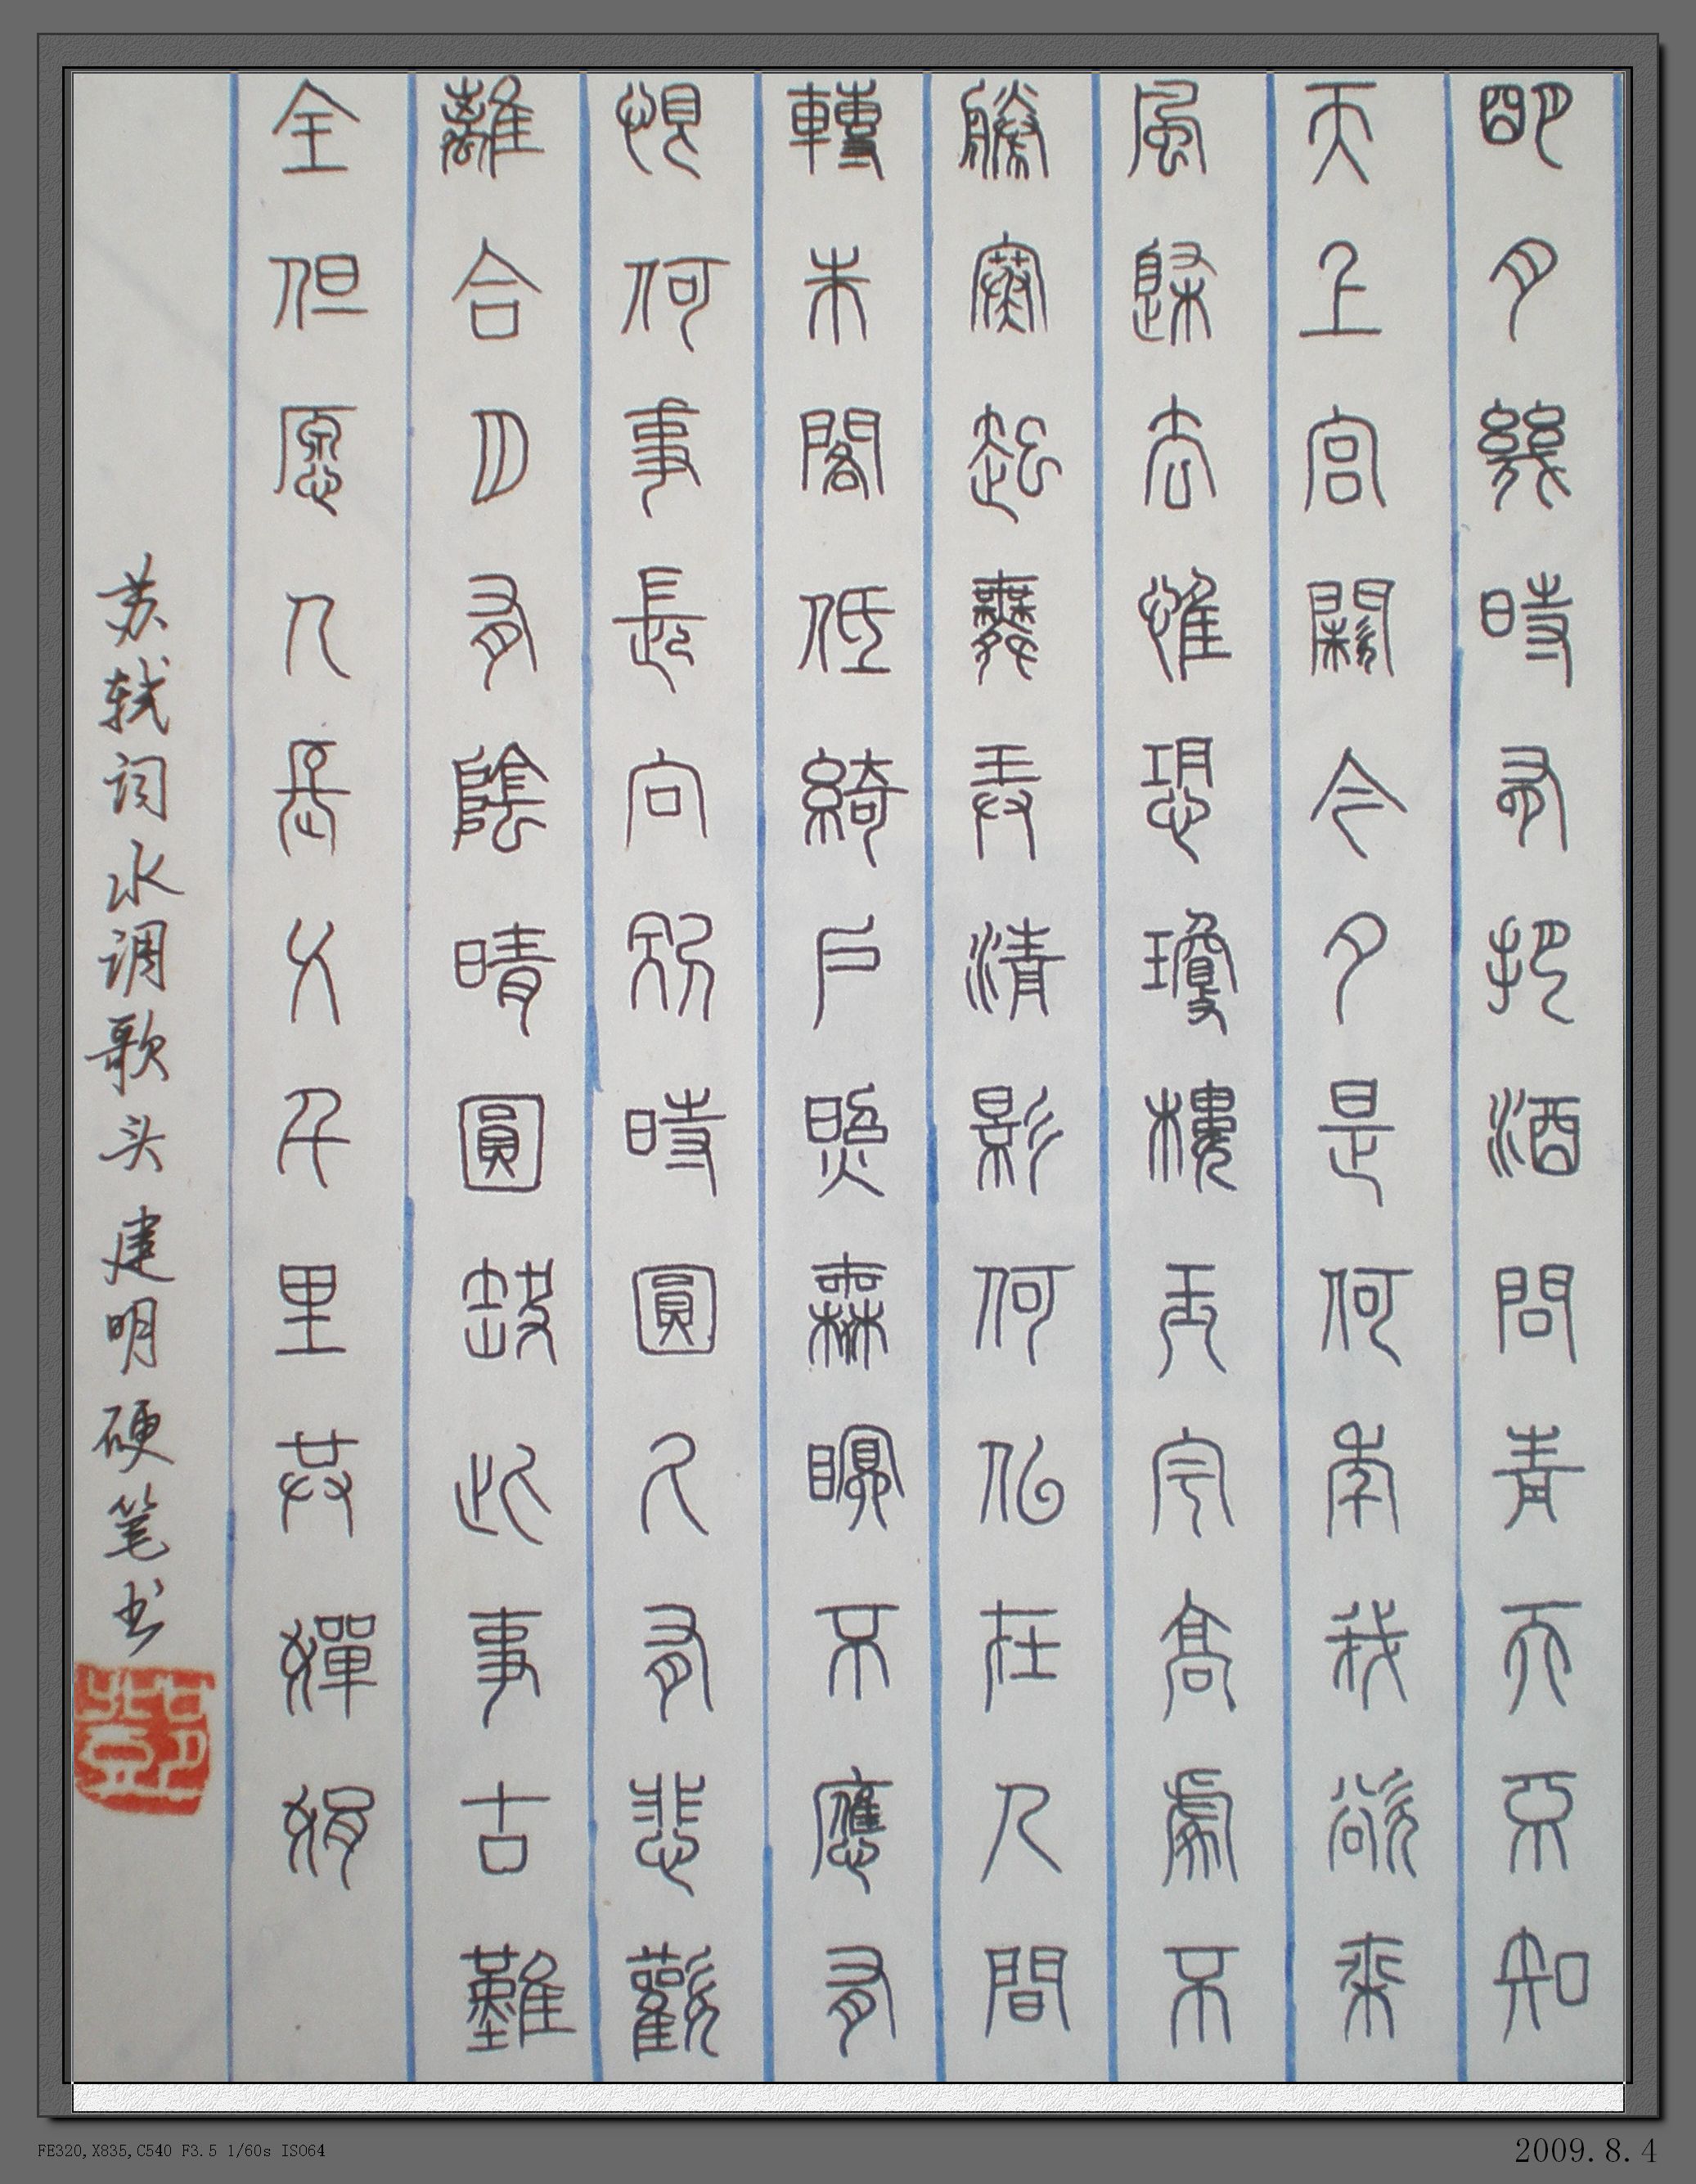 明月幾時有把酒問青天不知
天上宮闕今夕是何年我欲來
風歸去惟恐瓊樓玉宇高處不
勝寒起舞弄清影何似在人間
轉朱閣低綺戶照無眠不應有
恨何事長向別時圓人有悲歡
離合月有陰晴圓缺此事古難
全但愿人長久千里共嬋娟
苏轼词水调歌头 建明硬笔书
FE320,X835,C540 F3.5 1/60s ISO64
2009.8.4